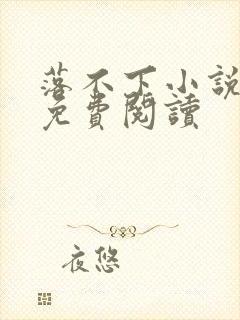 落不下小説
免費閱讀
夜悠